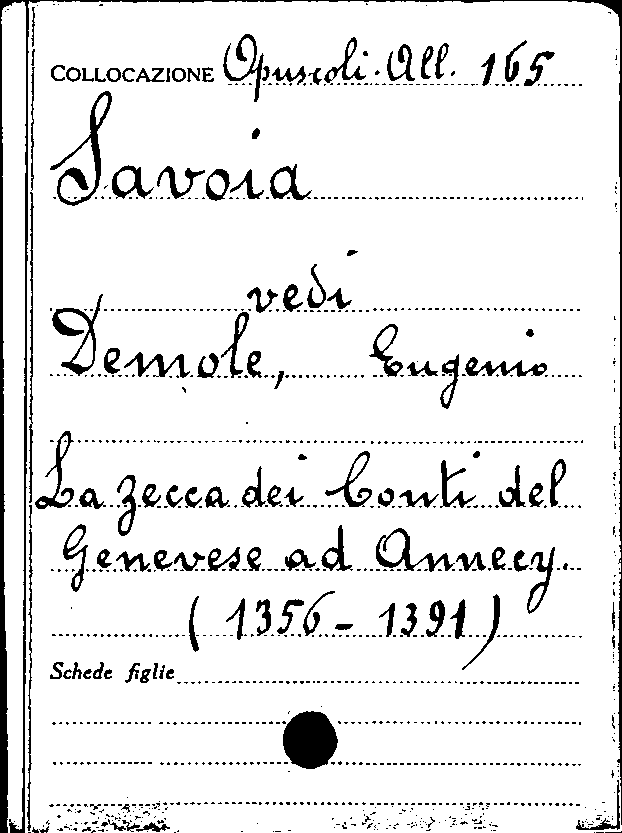 COLLOCAZIONE Opuscoli. All. 165
Savoia
vedi
Demole, Eugenio
La zecca dei Conti del
Genevese ad Annecy.
(1356 - 1391)
Schede figlie